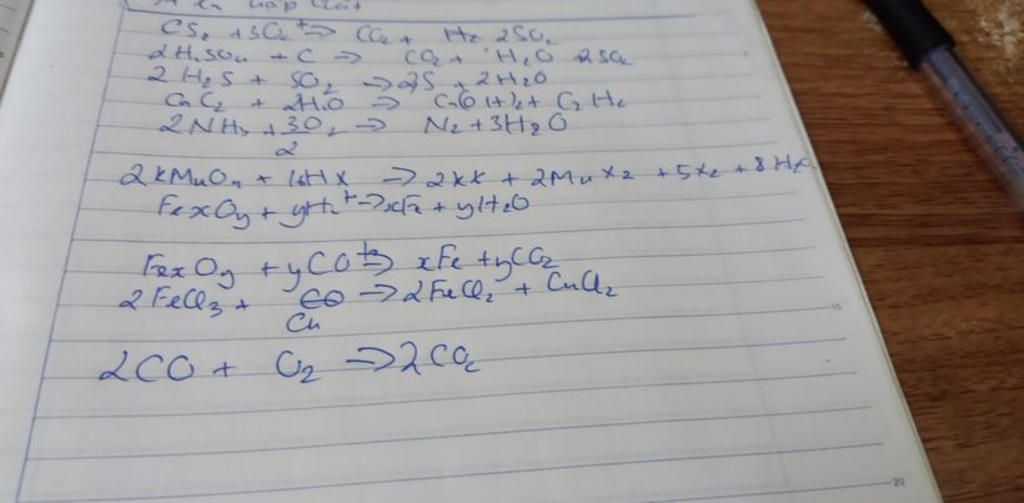 CS2 + 3O2 t° => CO2 + H2 2SO2
2H2SO4 + C => CO2 + H2O 2SO2
2H2S + SO2 -> 3S + 2H2O
CaC2 + 2H2O => Ca(OH)2 + C2H2
2NH3 + 3O2/2 -> N2 + 3H2O
2KMnO4 + 16HX -> 2KX + 2MnX2 + 5X2 + 8H2
FexOy + yH2 t° -> xFe + yH2O
FexOy + yCO t° => xFe + yCO2
2FeCl3 + Cu -> 2FeCl2 + CuCl2
2CO + O2 => 2CO2